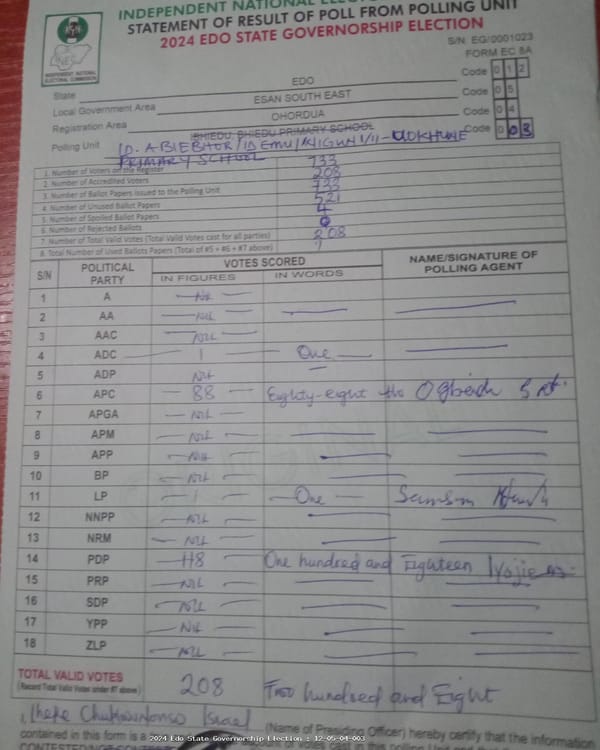 INDEPENDENT NATIONAL ELEC
STATEMENT OF RESULT OF POLL FROM POLLING UNIT
2024 EDO STATE GOVERNORSHIP ELECTION
S/N: EG/0001023
FORM EC 8A
INEC
INDEPENDENT NATIONAL
ELECTORAL COMMISSION
State EDO Code 0 1 2
Local Government Area ESAN SOUTH EAST Code 0 5
Registration Area OHORDUA Code 0 4
Polling Unit Code 0 0 3
PRIMARY SCHOOL
1. Number of Voters on the Register 733
2. Number of Accredited Voters 208
3. Number of Ballot Papers Issued to the Polling Unit 733
4. Number of Unused Ballot Papers 521
5. Number of Spoiled Ballot Papers 4
6. Number of Rejected Ballots
7. Number of Total Valid Votes (Total Valid Votes cast for all parties) 208
8. Total Number of Used Ballots Papers (Total of #5 + #6 + #7 above)
S/N POLITICAL PARTY VOTES SCORED NAME/SIGNATURE OF POLLING AGENT
IN FIGURES IN WORDS
1 A Nil
2 AA Nil
3 AAC Nil
4 ADC 1 One
5 ADP Nil
6 APC 88 Eighty-eight
7 APGA Nil
8 APM Nil
9 APP Nil
10 BP Nil
11 LP 1 One Samson
12 NNPP Nil
13 NRM Nil
14 PDP 118 One hundred and Eighteen
15 PRP Nil
16 SDP Nil
17 YPP Nil
18 ZLP Nil
TOTAL VALID VOTES 208 Two hundred and Eight
(Record Total Valid Votes under #7 above)
I, Israel (Name of Presiding Officer) hereby certify that the information
contained in this form is a
2024 Edo State Governorship Election : 12-05-04-003